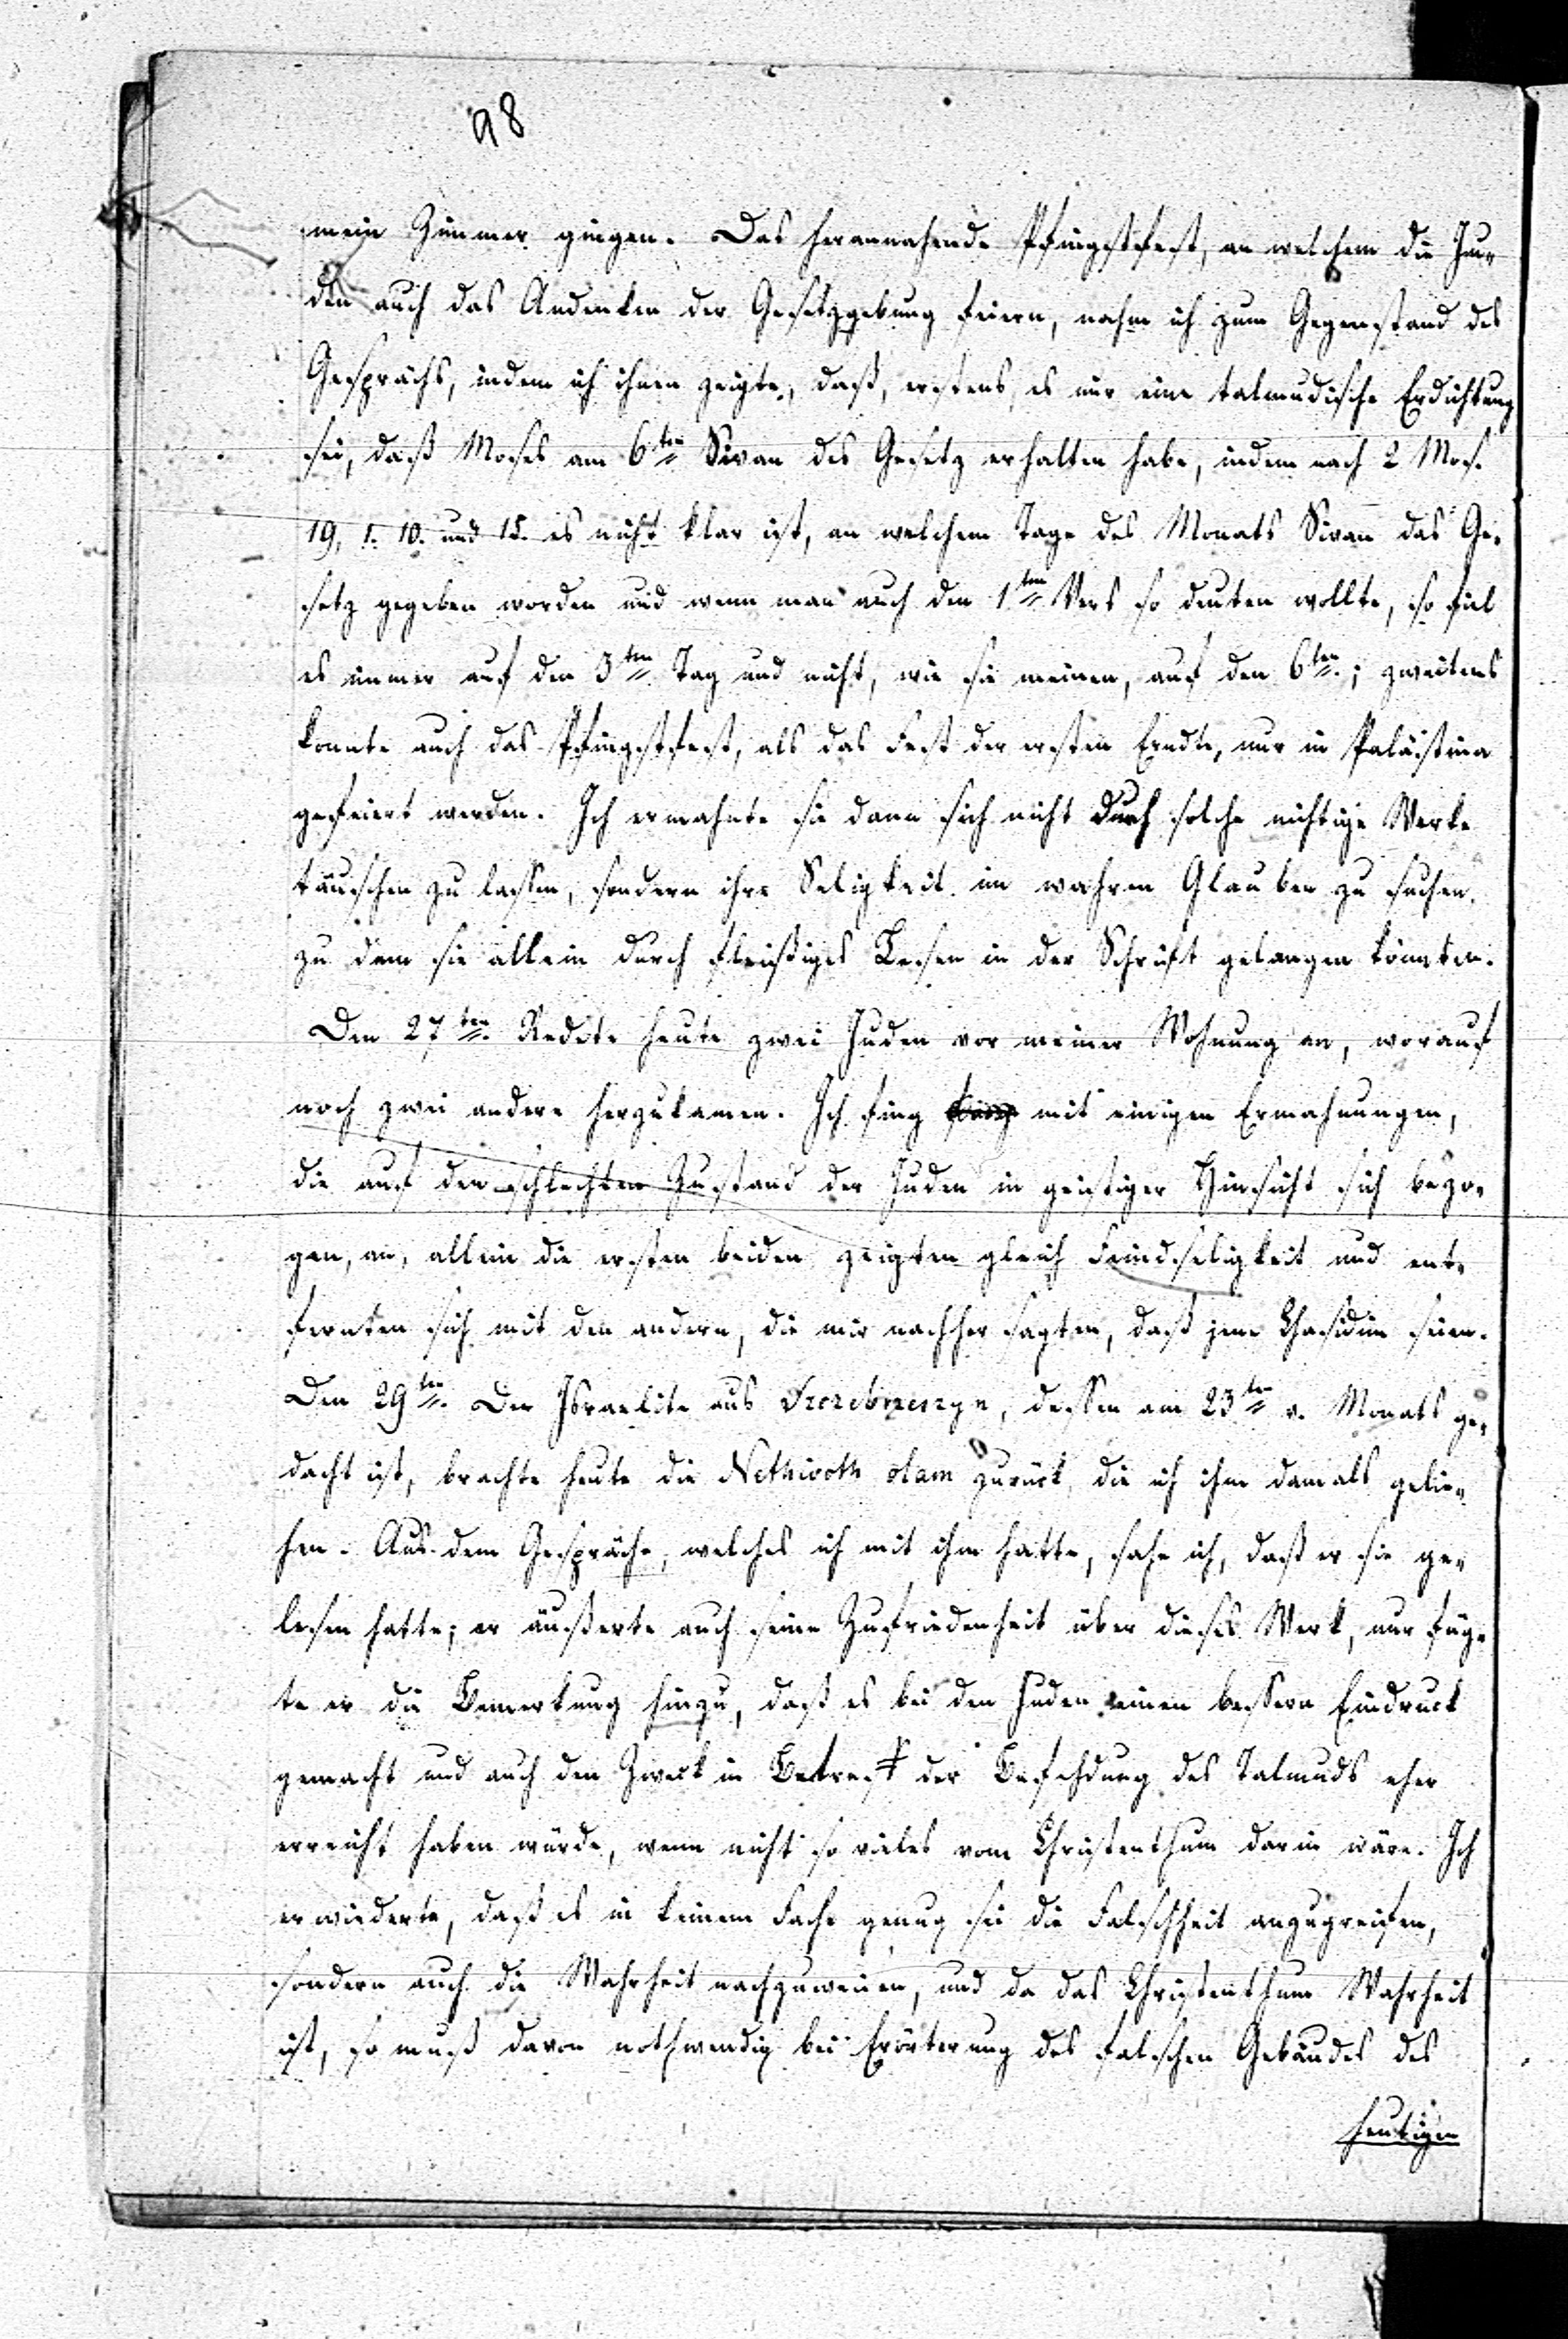 98
mein Zimmer gingen. Das herannahende Pfingstfest, an welchem die Ju-
den auch das Andenken der Gesetzgebung feiern, nahm ich zum Gegenstand des
Gesprächs, indem ich ihnen zeigte, daß, erstens, es nur eine talmudische Erdichtung
sei, daß Moses am 6ten Sivan des Gesetz erhalten habe, indem nach 2 Mos.
19, 1. 10. und 15. es nicht klar ist, an welchem Tage des Monats Sivan das Ge-
setz gegeben worden und wenn man auch den 1ten Vers so deuten wollte, so fiel
es immer auf den 3ten Tag und nicht, wie sie meinen, auf den 6ten; zweitens
konnte auch das Pfingstfest, als das Fest der ersten Erndte, nur in Palästina
gefeiert werden. Ich ermahnte sie dann sich nicht durch solche nichtige Werke
täuschen zu lassen, sondern ihre Seligkeit im wahren Glauben zu suchen,
zu dem sie allein durch fleißiges Lesen in der Schrift gelangen könnten.
Den 27ten. Redete heute zwei Juden vor meiner Wohnung an, worauf
noch zwei andere herzukamen. Ich fing mit einigen Ermahnungen,
die auf den schlechten Zustand der Juden in geistiger Hinsicht sich bezo-
gen, an, allein die ersten beiden zeigten gleich Feindseligkeit und ent-
fernten sich mit den andern, die mir nachher sagten, daß jene Chasidim seien.
Den 29ten. Der Israelite aus Szczebrzeszyn, dessen am 23ten v. Monats ge-
dacht ist, brachte heute die Nethiwoth olam zurück, die ich ihm damals gelie-
hen. Aus dem Gespräche, welches ich mit ihm hatte, sahe ich, daß er sie ge-
lesen hatte; er äußerte auch seine Zufriedenheit über dieses Werk, nur füg-
te er die Bemerkung hinzu, daß es bei den Juden einen bessern Eindruck
gemacht und auch den Zweck in Betreff der Befehdung des Talmuds eher
erreicht haben würde, wenn nicht so vieles vom Christenthum darin wäre. Ich
erwiederte, daß es in keinem Fache genug sei die Falschheit anzugreifen,
sondern auch die Wahrheit nachzuweisen, und da das Christenthum Wahrheit
ist, so muß davon nothwendig bei Erörterung des falschen Gebäudes des
heutigen